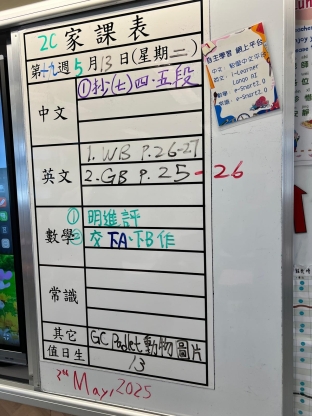 2C 家課表
第十九週 5月13日(星期二)
中文
①抄(七)四、五段
英文
1. WB P.26-27
2. GB P.25-26
數學
① 明進評
② 交下A、下B作
常識
其它
GC Padlet 動物圖片
值日生
13
May, 2025
自主學習 網上平台
i-Learner
e-Smart2.0
e-Smart2.0